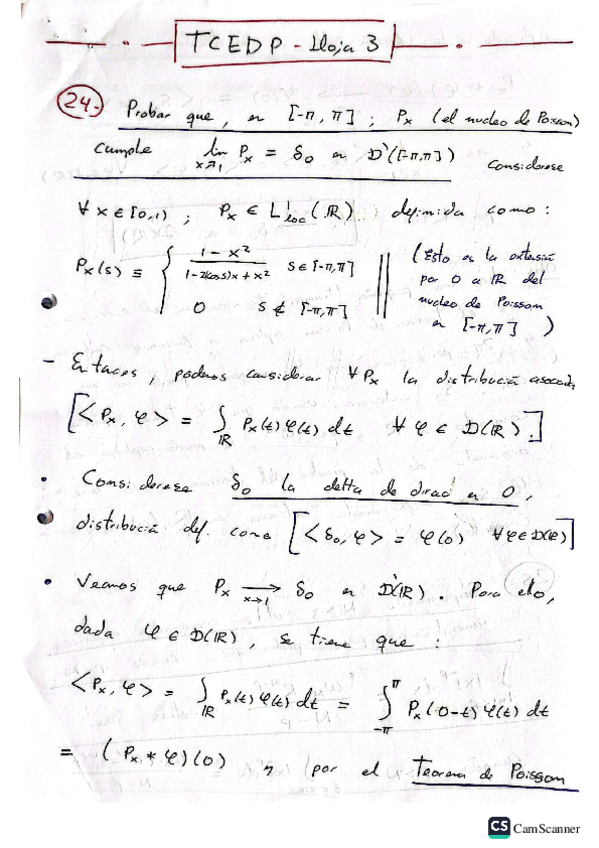 TCEDP - Hoja 3
24.- Probar que, en [-π, π]; Px (el nucleo de Poisson)
cumple lim x↗1 Px = δ0 en D'([-π,π]) Considerese
∀ x ∈ [0,1) ; Px ∈ L¹loc(ℝ) definida como:
Px(s) ≡ { (1-x²)/(1-2(cos s)x+x²) s ∈ [-π,π]
0 s ∉ [-π,π]
(Esto es la extensión
por 0 a ℝ del
nucleo de Poisson
en [-π,π])
- Entonces, podemos considerar ∀ Px la distribución asociada
[<Px, φ> = ∫ℝ Px(t)φ(t) dt ∀ φ ∈ D(ℝ).]
• Considerese δ0 la delta de dirac en 0,
distribución def. como [<δ0, φ> = φ(0) ∀φ∈D(ℝ)]
• Veamos que Px →x→1 δ0 en D'(ℝ). Para ello,
dada φ ∈ D(ℝ), se tiene que :
<Px, φ> = ∫ℝ Px(t)φ(t) dt = ∫-π^π Px(0-t)φ(t) dt
= (Px * φ)(0) y por el Teorema de Poisson
CS CamScanner